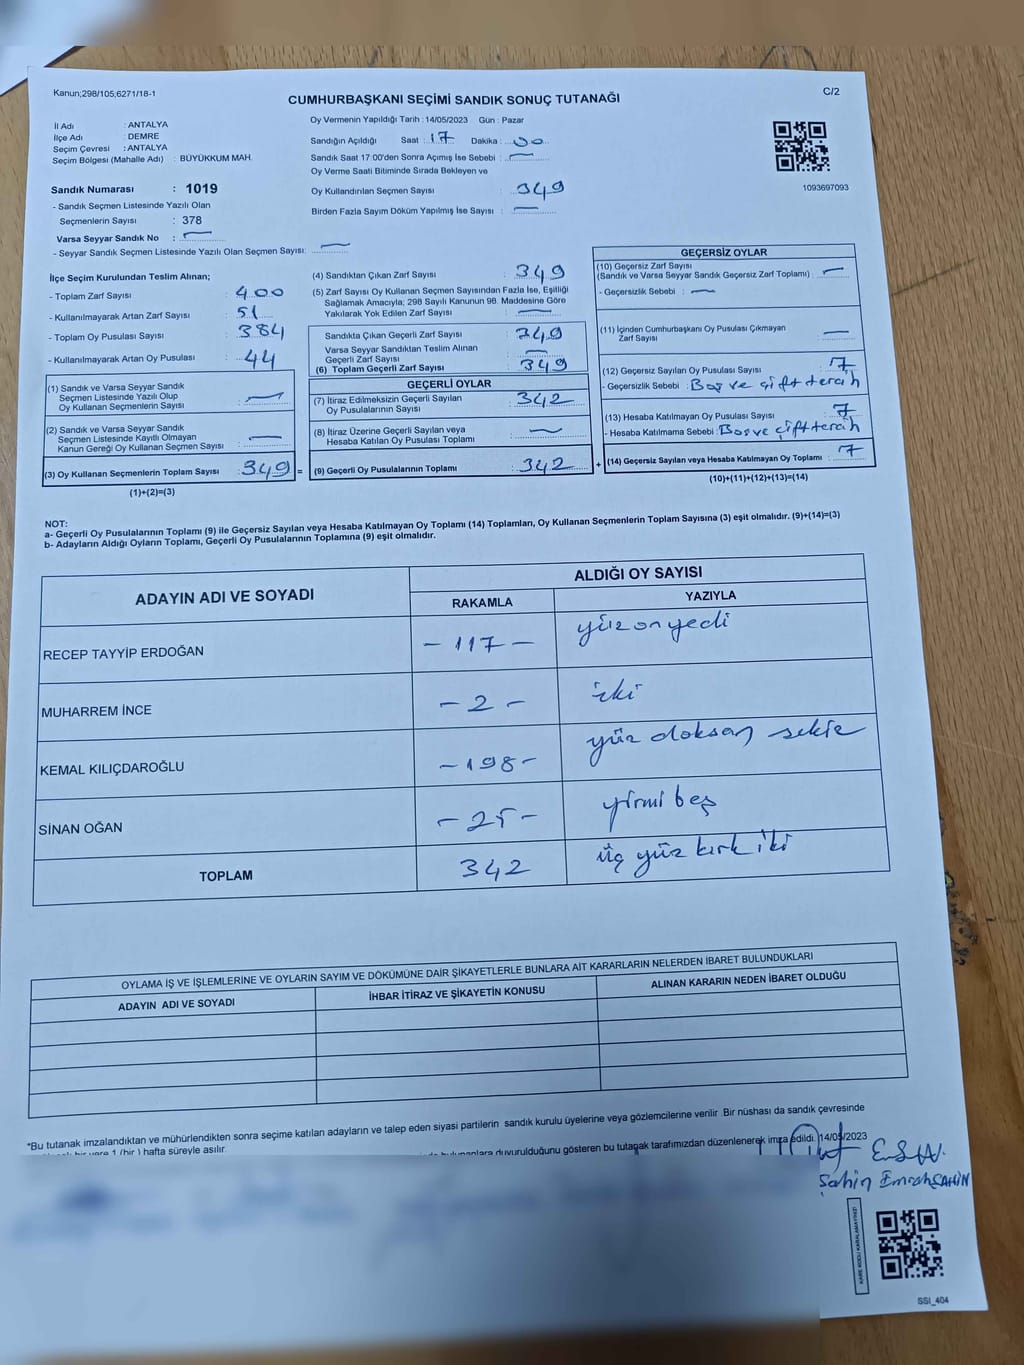 Kanun;298/105;6271/18-1
C/2
CUMHURBAŞKANI SEÇİMİ SANDIK SONUÇ TUTANAĞI
İl Adı : ANTALYA
İlçe Adı : DEMRE
Seçim Çevresi : ANTALYA
Seçim Bölgesi (Mahalle Adı) : BÜYÜKKUM MAH.
Sandık Numarası : 1019
- Sandık Seçmen Listesinde Yazılı Olan
Seçmenlerin Sayısı : 378
Varsa Seyyar Sandık No : —
- Seyyar Sandık Seçmen Listesinde Yazılı Olan Seçmen Sayısı: —
Oy Vermenin Yapıldığı Tarih : 14/05/2023 Gün : Pazar
Sandığın Açıldığı Saat : 17 Dakika : 00
Sandık Saat 17:00'den Sonra Açımış İse Sebebi : —
Oy Verme Saati Bitiminde Sırada Bekleyen ve
Oy Kullandırılan Seçmen Sayısı : 349
Birden Fazla Sayım Döküm Yapılmış İse Sayısı : —
1093697093
İlçe Seçim Kurulundan Teslim Alınan;
- Toplam Zarf Sayısı : 400
- Kullanılmayarak Artan Zarf Sayısı : 51
- Toplam Oy Pusulası Sayısı : 384
- Kullanılmayarak Artan Oy Pusulası : 44
(1) Sandık ve Varsa Seyyar Sandık
Seçmen Listesinde Yazılı Olup
Oy Kullanan Seçmenlerin Sayısı : —
(2) Sandık ve Varsa Seyyar Sandık
Seçmen Listesinde Kayıtlı Olmayan
Kanun Gereği Oy Kullanan Seçmen Sayısı : —
(3) Oy Kullanan Seçmenlerin Toplam Sayısı : 349 =
(1)+(2)=(3)
(4) Sandıktan Çıkan Zarf Sayısı : 349
(5) Zarf Sayısı Oy Kullanan Seçmen Sayısından Fazla İse, Eşitliği
Sağlamak Amacıyla; 298 Sayılı Kanunun 98. Maddesine Göre
Yakılarak Yok Edilen Zarf Sayısı : —
Sandıkta Çıkan Geçerli Zarf Sayısı : 349
Varsa Seyyar Sandıktan Teslim Alınan
Geçerli Zarf Sayısı : —
(6) Toplam Geçerli Zarf Sayısı : 349
GEÇERLİ OYLAR
(7) İtiraz Edilmeksizin Geçerli Sayılan
Oy Pusulalarının Sayısı : 342
(8) İtiraz Üzerine Geçerli Sayılan veya
Hesaba Katılan Oy Pusulası Toplamı : —
(9) Geçerli Oy Pusulalarının Toplamı : 342 +
GEÇERSİZ OYLAR
(10) Geçersiz Zarf Sayısı
(Sandık ve Varsa Seyyar Sandık Geçersiz Zarf Toplamı) : —
- Geçersizlik Sebebi : —
(11) İçinden Cumhurbaşkanı Oy Pusulası Çıkmayan
Zarf Sayısı : —
(12) Geçersiz Sayılan Oy Pusulası Sayısı : 7
- Geçersizlik Sebebi : Boş ve çift tercih
(13) Hesaba Katılmayan Oy Pusulası Sayısı : 7
- Hesaba Katılmama Sebebi : Boş ve Çift tercih
(14) Geçersiz Sayılan veya Hesaba Katılmayan Oy Toplamı : 7
(10)+(11)+(12)+(13)=(14)
NOT:
a- Geçerli Oy Pusulalarının Toplamı (9) ile Geçersiz Sayılan veya Hesaba Katılmayan Oy Toplamı (14) Toplamları, Oy Kullanan Seçmenlerin Toplam Sayısına (3) eşit olmalıdır. (9)+(14)=(3)
b- Adayların Aldığı Oyların Toplamı, Geçerli Oy Pusulalarının Toplamına (9) eşit olmalıdır.
ADAYIN ADI VE SOYADI ALDIĞI OY SAYISI
RAKAMLA YAZIYLA
RECEP TAYYİP ERDOĞAN - 117 - yüz on yedi
MUHARREM İNCE - 2 - iki
KEMAL KILIÇDAROĞLU - 198 - yüz doksan sekiz
SİNAN OĞAN - 25 - yirmi beş
TOPLAM 342 üç yüz kırk iki
OYLAMA İŞ VE İŞLEMLERİNE VE OYLARIN SAYIM VE DÖKÜMÜNE DAİR ŞİKAYETLERLE BUNLARA AİT KARARLARIN NELERDEN İBARET BULUNDUKLARI
ADAYIN ADI VE SOYADI İHBAR İTİRAZ VE ŞİKAYETİN KONUSU ALINAN KARARIN NEDEN İBARET OLDUĞU
*Bu tutanak imzalandıktan ve mühürlendikten sonra seçime katılan adayların ve talep eden siyasi partilerin sandık kurulu üyelerine veya gözlemcilerine verilir .Bir nüshası da sandık çevresinde
1 (bir ) hafta süreyle asılır. duyurulduğunu gösteren bu tutanak tarafımızdan düzenlenerek imza edildi. 14/05/2023
Şahin Emrah ŞAHİN
KARE KODU KARALAMAYINIZ!
SSI_404